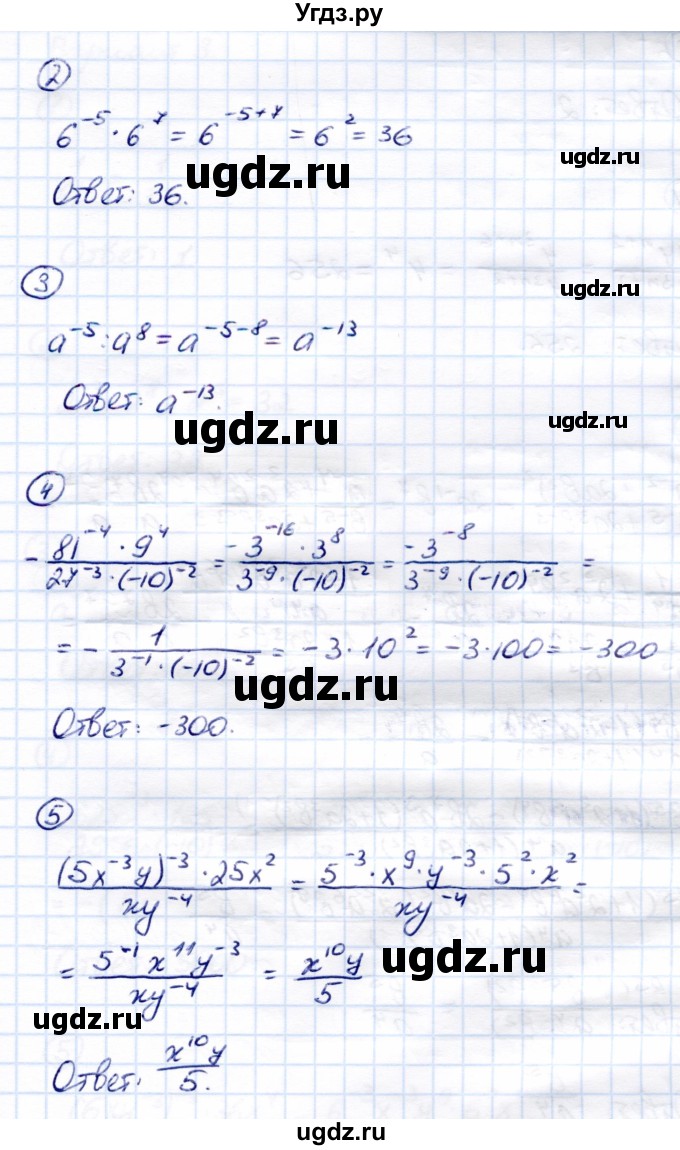 Угдз.ру
2
6^{-5} · 6^{7} = 6^{-5+7} = 6^{2} = 36
ugdz.ru
Ответ: 36.
ugdz.ru
3
ugdz.ru
a^{-5} : a^{8} = a^{-5-8} = a^{-13}
Ответ: a^{-13}.
ugdz.ru
ugdz.ru
4
- \frac{81^{-4} · 9^{4}}{27^{-3} · (-10)^{-2}} = \frac{-3^{-16} · 3^{8}}{3^{-9} · (-10)^{-2}} = \frac{-3^{-8}}{3^{-9} · (-10)^{-2}} =
= - \frac{1}{3^{-1} · (-10)^{-2}} = -3 · 10^{2} = -3 · 100 = -300
ugdz.ru
Ответ: -300.
5
\frac{(5x^{-3}y)^{-3} · 25x^{2}}{xy^{-4}} = \frac{5^{-3} · x^{9} · y^{-3} · 5^{2} · x^{2}}{xy^{-4}} =
= \frac{5^{-1} x^{11} y^{-3}}{xy^{-4}} = \frac{x^{10}y}{5}
ugdz.ru
ugdz.ru
Ответ: \frac{x^{10}y}{5}.
ugdz.ru